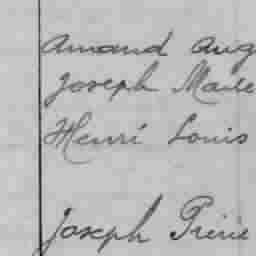 Amand Aug
Joseph Marie
Henri Louis
Joseph Pierre